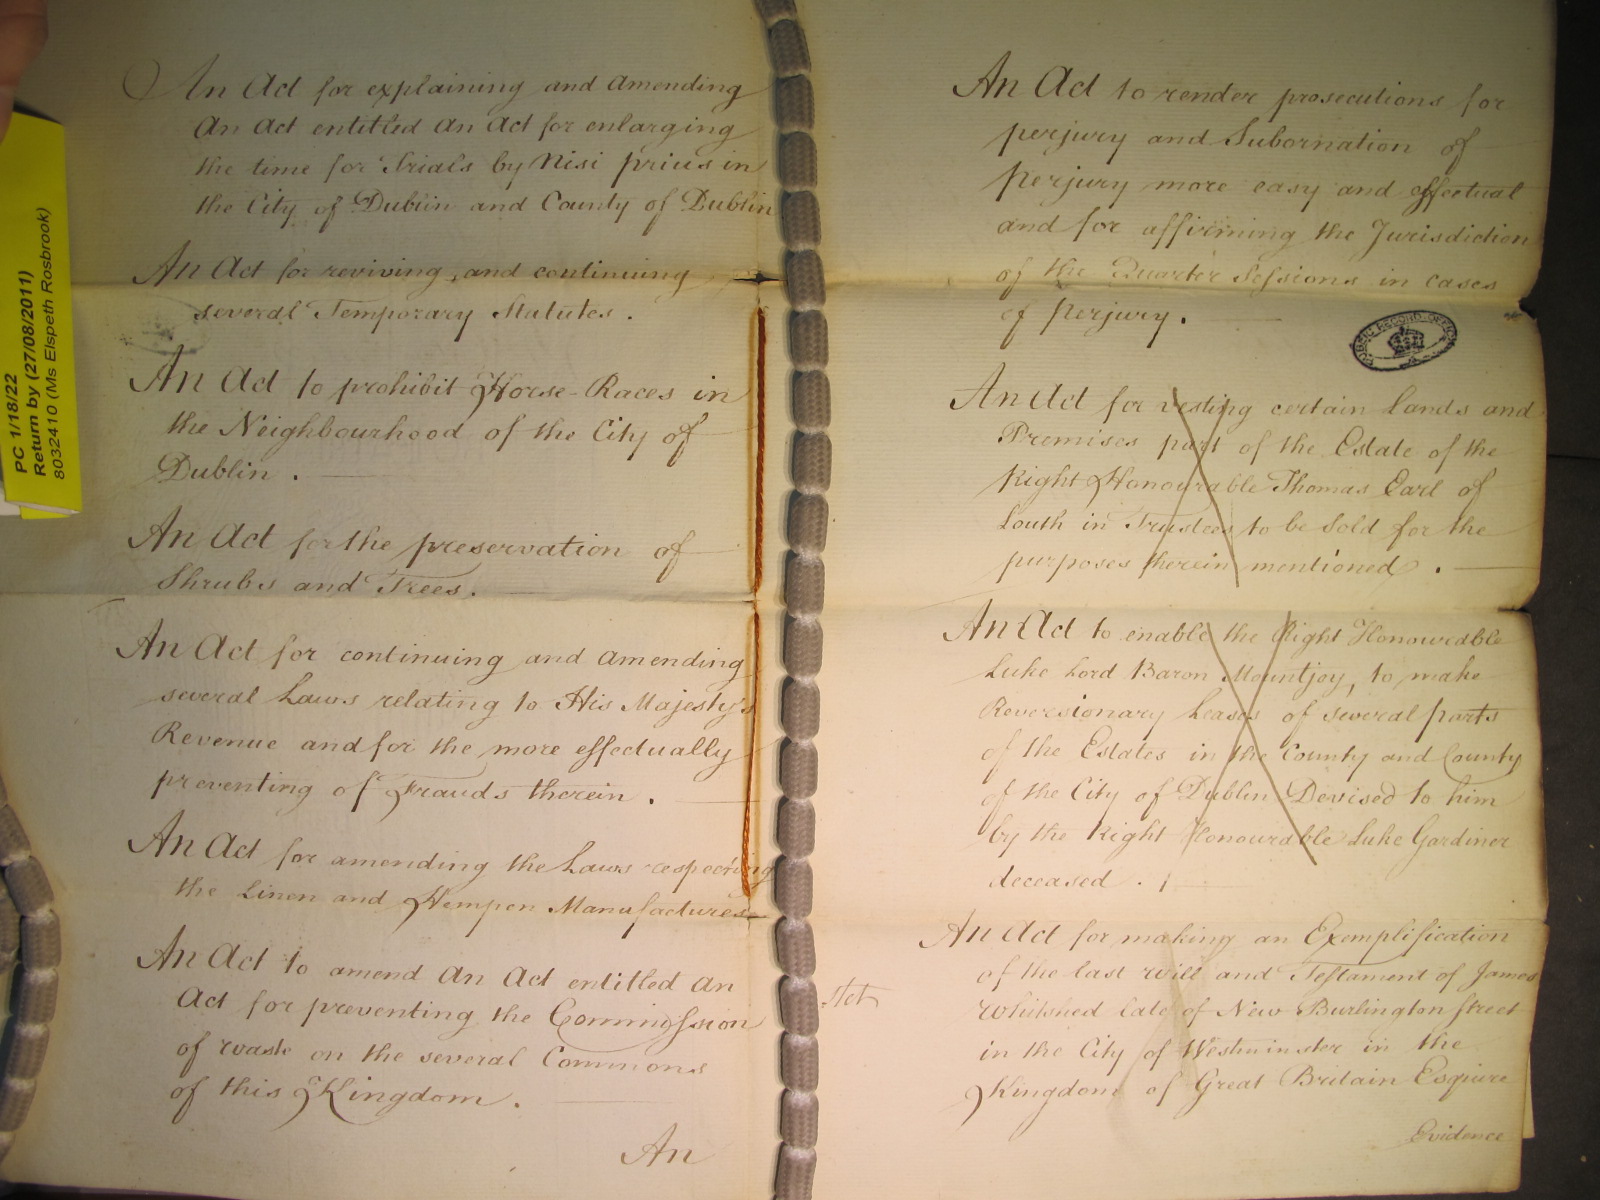 PC 1/18/22
Return by (27/08/2011)
8032410 (Ms Elspeth Rosbrook)
An Act for explaining and amending
an Act entitled an Act for enlarging
the time for Trials by Nisi prius in
the City of Dublin and County of Dublin
An Act for reviving, and continuing
several Temporary Statutes.
An Act to prohibit Horse-Races in
the Neighbourhood of the City of
Dublin.
An Act for the preservation of
Shrubs and Trees.
An Act for continuing and amending
several Laws relating to His Majesty's
Revenue and for the more effectually
preventing of Frauds therein.
An Act for amending the Laws respecting
the Linen and Hempen Manufactures
An Act to amend an Act entitled an
Act for preventing the Commission
of waste on the several Commons
of this Kingdom.
An
An Act to render prosecutions for
perjury and Subornation of
perjury more easy and effectual
and for affirming the Jurisdiction
of the Quarter Sessions in cases
of perjury.
PUBLIC RECORD OFFICE
An Act for vesting certain Lands and
Premises part of the Estate of the
Right Honourable Thomas Earl of
Louth in Trustees to be Sold for the
purposes therein mentioned.
An Act to enable the Right Honourable
Luke Lord Baron Mountjoy, to make
Reversionary Leases of several parts
of the Estates in the County and County
of the City of Dublin Devised to him
by the Right Honourable Luke Gardiner
deceased.
An Act for making an Exemplification
of the last will and Testament of James
Whitshed late of New Burlington Street
in the City of Westminster in the
Kingdom of Great Britain Esquire
Evidence